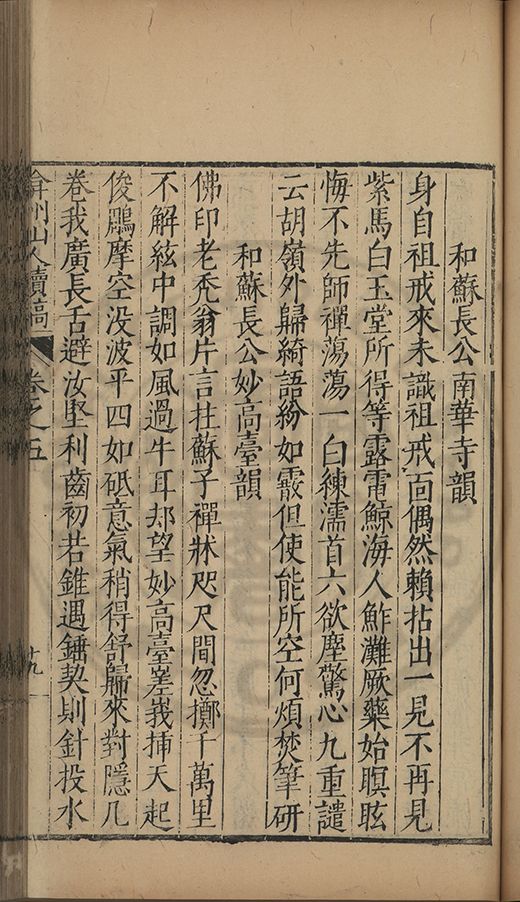 和蘇長公南華寺韻
身自祖戒來未識祖戒面偶然賴拈出一見不再見
紫馬白玉堂所得等露電鯨海人鮓灘厥藥始瞑眩
悔不先師禪蕩蕩一白練濡首六欲塵驚心九重譴
云胡嶺外歸綺語紛如霰但使能所空何煩焚筆研
和蘇長公妙高臺韻
佛印老禿翁片言拄蘇子禪牀咫尺間忽擲千萬里
不解絃中調如風過牛耳却望妙高臺嵳峩揷天起
俊鶻摩空没波平四如砥意氣稍得舒歸來對隱几
卷我廣長舌避汝堅利齒初若錐遇錘契則針投水
弇州山人續稿
卷之五
十九